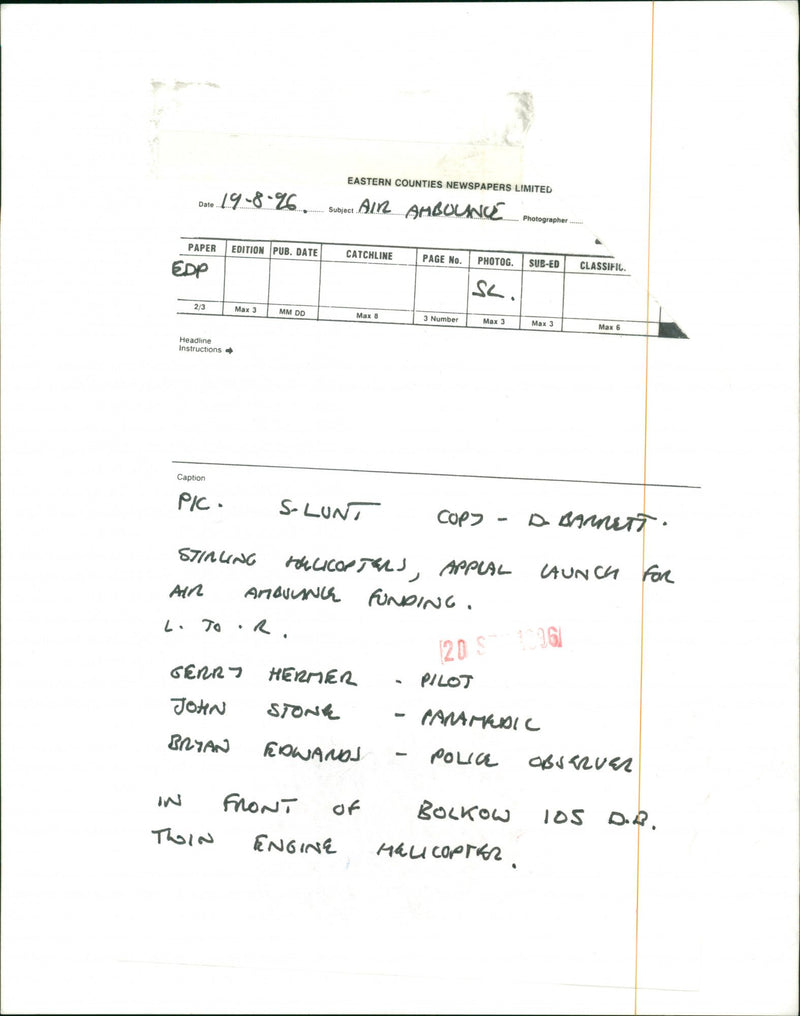 EASTERN COUNTIES NEWSPAPERS LIMITED
Date 19-8-96. Subject AIR AMBULANCE Photographer
PAPER EDITION PUB. DATE CATCHLINE PAGE No. PHOTOG. SUB-ED CLASSIFIC.
EDP SL.
2/3 Max 3 MM DD Max 8 3 Number Max 3 Max 3 Max 6
Headline
Instructions
Caption
PIC. S-LUNT COPY - D. BARRETT.
STIRLING HELICOPTERS, APPEAL LAUNCH FOR
AIR AMBULANCE FUNDING.
L. TO. R.
20 S 1996
GERRY HERMER - PILOT
JOHN STONE - PARAMEDIC
BRYAN EDWARDS - POLICE OBSERVER
IN FRONT OF BOLKOW 105 D.B.
TWIN ENGINE HELICOPTER.